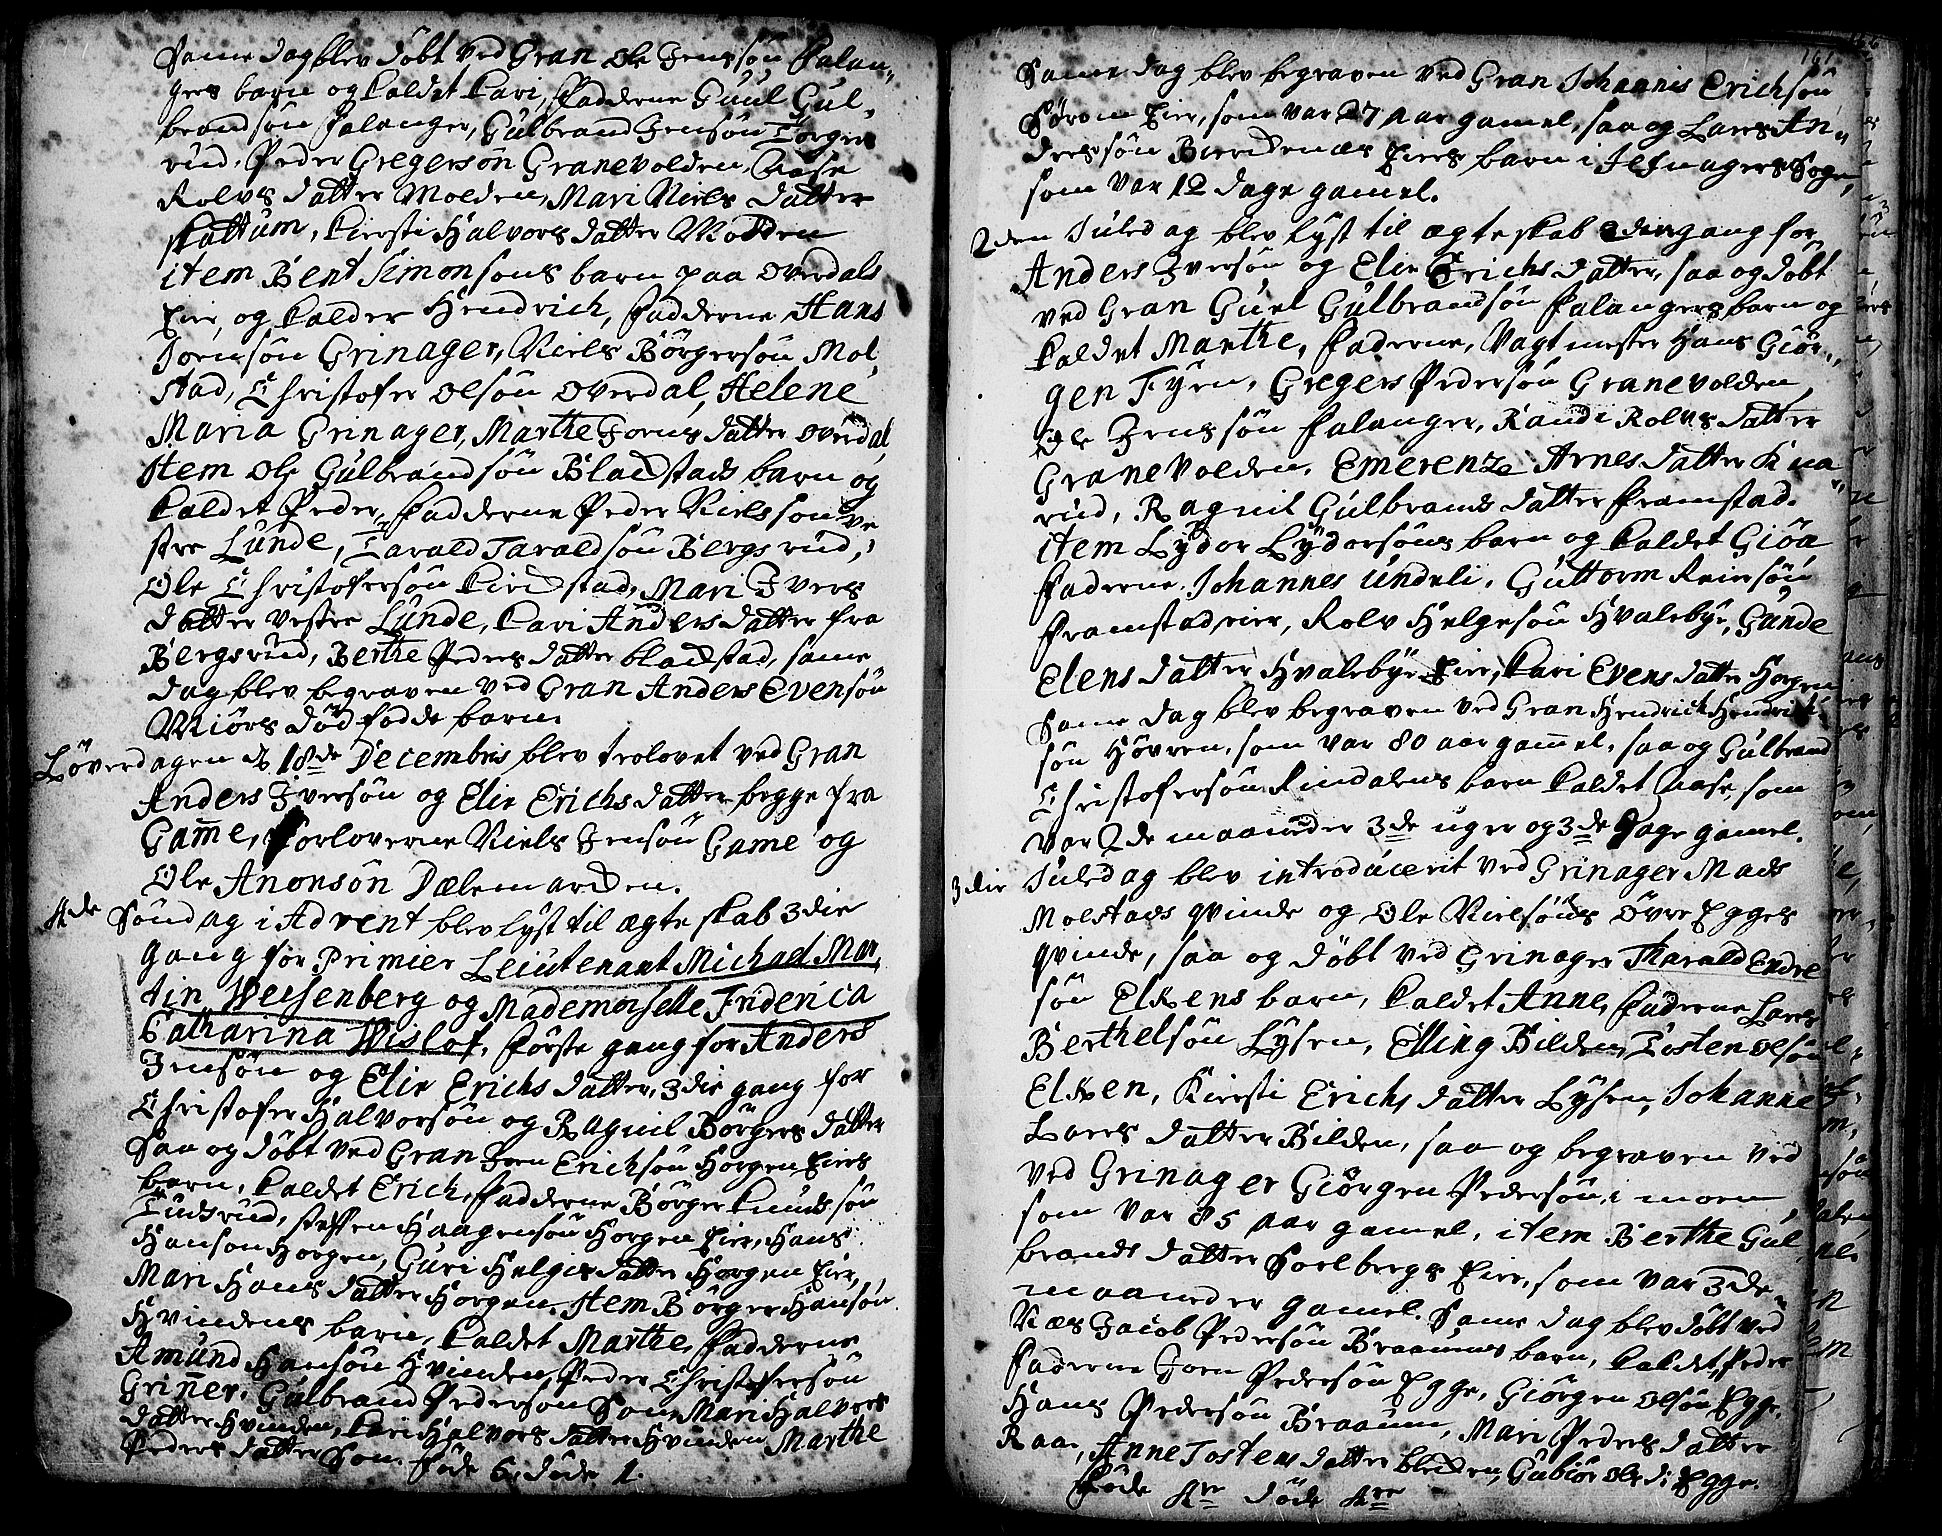 Same dag blev døbt ved Gran Ole Jenssøn Falan-
gers barn og kaldet Kari, Fadderne Guul Gul-
brandsøn Falanger, Gulbrand Jensøn Torger
rud, Peder Gregersøn Granevolden, Aase
Rolvs datter Molden, Mari Niels datter
skattum, Kiersti Halvors datter Molden
item Bent Simonsøns barn paa overdals
Eier, og kalder Hendrich, Fadderne Hans
Joensøn Grinager, Niels Børgersøn Mol
stad, Christofer olsøn overdal, Helene
Maria Grinager, Marthe Joens datter overdal
Item Ole Gulbrandsøn Bladstads barn og
kaldet Peder, Fadderne Peder Nielssøn ve
stre Lunde, Tarald Taraldsøn Bergsrud,
Ole Christofersøn Kirkstad, Mari Ivers
datter vestre Lunde, Kari Anders datter fra
Bergsrud, Berthe Peders datter bladstad, same
dag blev begraven ved Gran Anders Evensøn
Miørs død fødde barn.
Løverdagen d 18de Decembris blev trolovet ved Gran
Anders Iversøn og Elie Erichs datter begge fra
Game, Forloverne Niels Jensøn Game og
Ole Anonsøn Dælemarken.
4de Søndag i Advent blev lyst til ægteskab 3die
gang for Primier Leiutenant Michael Mar-
tin Weisenberg og Mademoiselle Friderica
Catharina Wislof, første gang for Anders
Jensøn og Elie Erichs datter, 3die gang for
Christofer Halvorsøn og Ragnil Børgers datter
Saa og døbt ved Gran Joen Erichsøn Horgen Eiers
barn, kaldet Erich, Fadderne Børger Knudssøn
Tudsrud, steffen Haagensøn Horgen Eier, Hans
Hansøn Horgen, Guri Helges datter Horgen Eier,
Mari Hans datter Horgen. Item Børger Hansøn
Hvindens barn, kaldet Marthe, Fadderne
Amund Hansøn Hvinden, Peder Christofersøn
Griner, Gulbrand Pedersøn Son Mari Halvors
datter Hvinden, Kari Halvors datter Hvinden Marthe
Peders datter Son. Føde 6, døde 1.
161
Same dag blev begraven ved Gran Johannis Erichsøn
Sørom Eier, som var 27 aar gamel, saa og Lars An-
derssøn Bierdenæs Eiers barn i Jefnagers Sogn,
som var 12 dage gamel.
2den Juledag blev lyst til ægteskab 2den gang for
Anders Iversøn og Elie Erichs datter, saa og døbt
ved Gran Guul Gulbrandsøn Falangers barn og
kaldet Marthe, Faderne, Vagtmester Hans Giør-
gen Fyen, Gregers Pedersøn Granevolden,
Ole Jenssøn Falanger, Randi Rolvs datter
Granevolden, Emerenze Arnes datter Kna
rud, Ragnil Gulbrands datter Framstad.
item Lydor Lydersøns barn og kaldet Giøa
Faderne Johannes Undeli, Guttorm Reiersøn
Framstadeier, Rolv Helgesøn Hvalebye, Gunde
Elens datter Hvalebye Eier, Kari Evens datter Horgen
Same dag blev begraven ved Gran Hendrich Hendrich
søn Hovren, som var 80 aar gamel, saa og Gulbrand
Christofersøn Rindalens barn kaldet Aase, som
var 2de maaneder 3de uger og 3de dage gamel.
3die Juledag blev introducerit ved Grinager Mads
Molstads qvinde og Ole Nielsøns øvre Egges
qvinde, saa og døbt ved Grinager Tharald Endre
søn Elkens barn, kaldet Anne, Faderne Lars
Berthelsøn Lysen, Elling Bilden, Tosten olsøn
Elken, Kiersti Erichs datter Lysen, Johanne
Lars datter Bilden, saa og begraven ved
ved Grinager Giørgen Pedersøn i moen
som var 85 aar gamel, item Berthe Gul
brands datter Soelbergs Eier, som var 3de
maaneder gamel. Same dag blev døbt ved
Næs Jacob Pedersøn Braaums barn, kaldet Peder
Faderne Joen Pedersøn Egge, Giørgen olsøn Egge
Hans Pedersøn Braaum, Mari Peders datter
Raae, Anne Tostens datter blekken, Gubiør oles d: Egge.
Føde 4re døde 4re